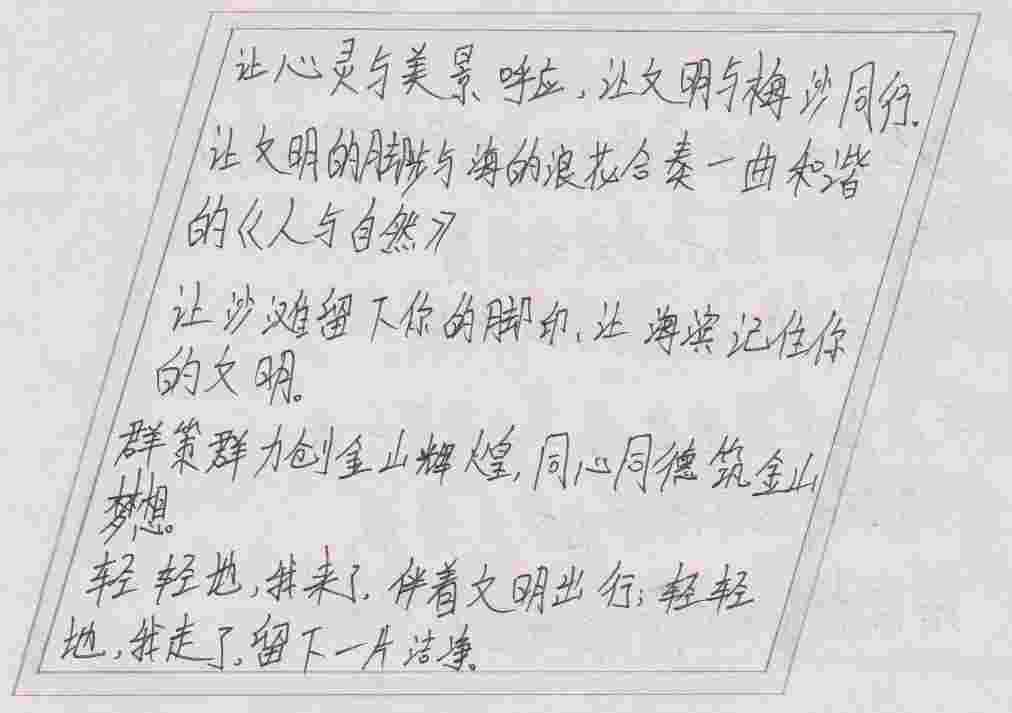 让心灵与美景呼应,让文明与梅沙同行.
让文明的脚步与海的浪花合奏一曲和谐
的《人与自然》
让沙滩留下你的脚印,让海滨记住你
的文明。
群策群力创金山辉煌,同心同德筑金山
梦想。
轻轻地,我来了,伴着文明出行;轻轻
地,我走了,留下一片洁净。